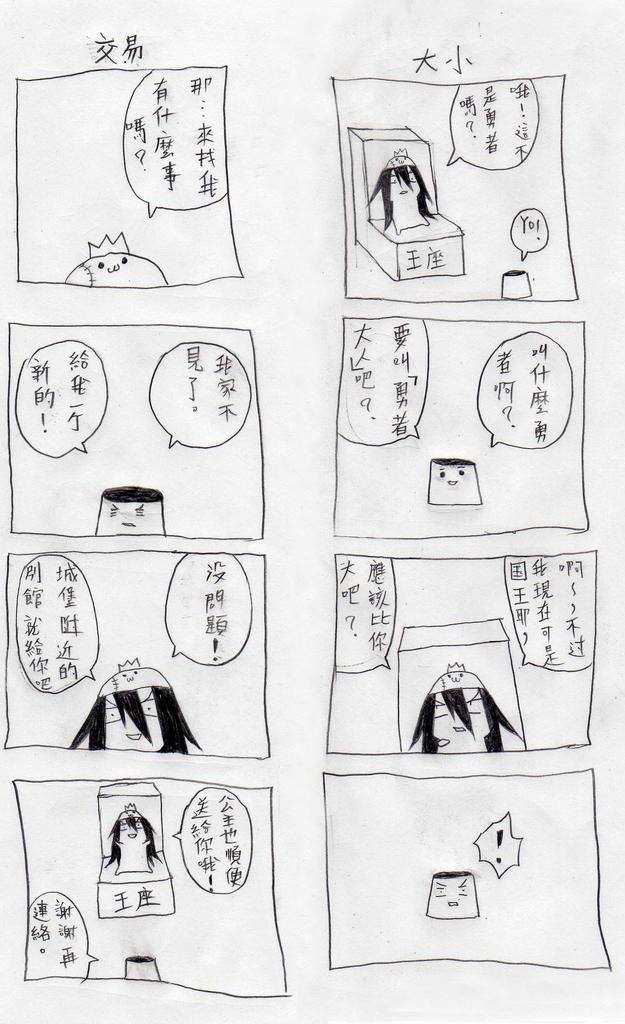 大小
哦！這不
是勇者
嗎？
王座
YO!
叫什麼勇
者啊？
要叫「勇者
大人」吧？
啊～，不过
我現在可是
国王耶，
應該比你
大吧？
！
交易
那…來找我
有什麼事
嗎？
我家不
見了。
給我一个
新的！
没問題！
城堡附近的
別館就給你吧
公主也順便
送給你哦！
王座
謝謝再
連絡。